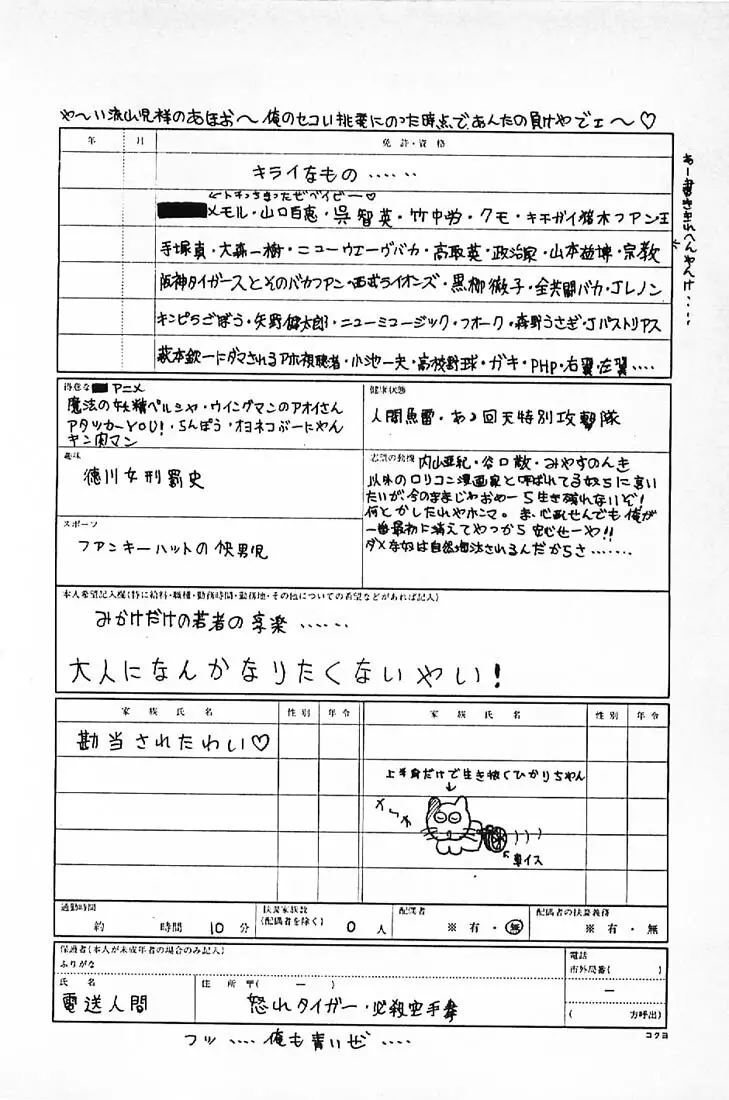 や〜い流山児様のあほお〜俺のセコい挑発にのった時点で、あんたの負けやでェ〜♡
あー書ききれへんやんけ....
年 月 免許・資格
キライなもの......
メモル・山口百恵・呉智英・竹中労・クモ・キチガイ猪木ファン王
手塚眞・大森一樹・ニューウエーヴバカ・高取英・政治家・山本益博・宗教
阪神タイガースとそのバカファン・西武ライオンズ・黒柳徹子・全共闘バカ・Jレノン
キンピらごぼう・矢野健太郎・ニューミュージック・フオーク・森野うさぎ・Jパストリアス
萩本欽一にダマされるアホ視聴者・小池一夫・高校野球・ガキ・PHP・右翼・左翼....
得意な アニメ
魔法の妖精ペルシャ・ウイングマンのアオイさん
アタッカーYOU!・らんぽう・オヨネコぶーにゃん
キン肉マン
健康状態
人間魚雷・あゝ回天特別攻撃隊
趣味
徳川女刑罰史
志望の動機 内山亜紀・谷口敬・みやすのんき
以外のロリコン漫画家と呼ばれてる奴らに言い
たいが今のままじゃおめーら生き残れないぞ!
何とかしたれやホンマ。ま、心配せんでも俺が
一番最初に消えてやっから安心せーや!!
ダメな奴は自然淘汰されるんだからさ......
スポーツ
ファンキーハットの快男児
本人希望記入欄(特に給料・職種・勤務時間・勤務地・その他についての希望などがあれば記入)
みかけだけの若者の享楽......
大人になんかなりたくないやい!
家族氏名 性別 年令 家族氏名 性別 年令
勘当されたわい♡
上半身だけで生き抜くひかりちゃん
車イス
通勤時間
約 時間 10分
扶養家族数
(配偶者を除く) 0人
配偶者
※有・無
配偶者の扶養義務
※有・無
保護者(本人が未成年者の場合のみ記入)
ふりがな
氏名
電送人間
住所〒( — )
怒れタイガー・必殺空手拳
電話
市外局番( )
—
( 方呼出)
フッ....俺も青いぜ....
コクヨ